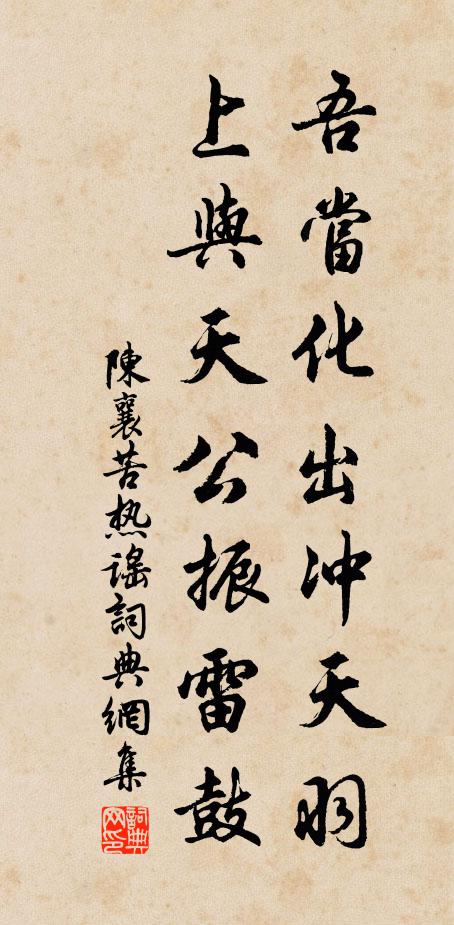 吾當化出冲天羽
上與天公振雷鼓
陳襄苦热謡詞典網集
詞典网印